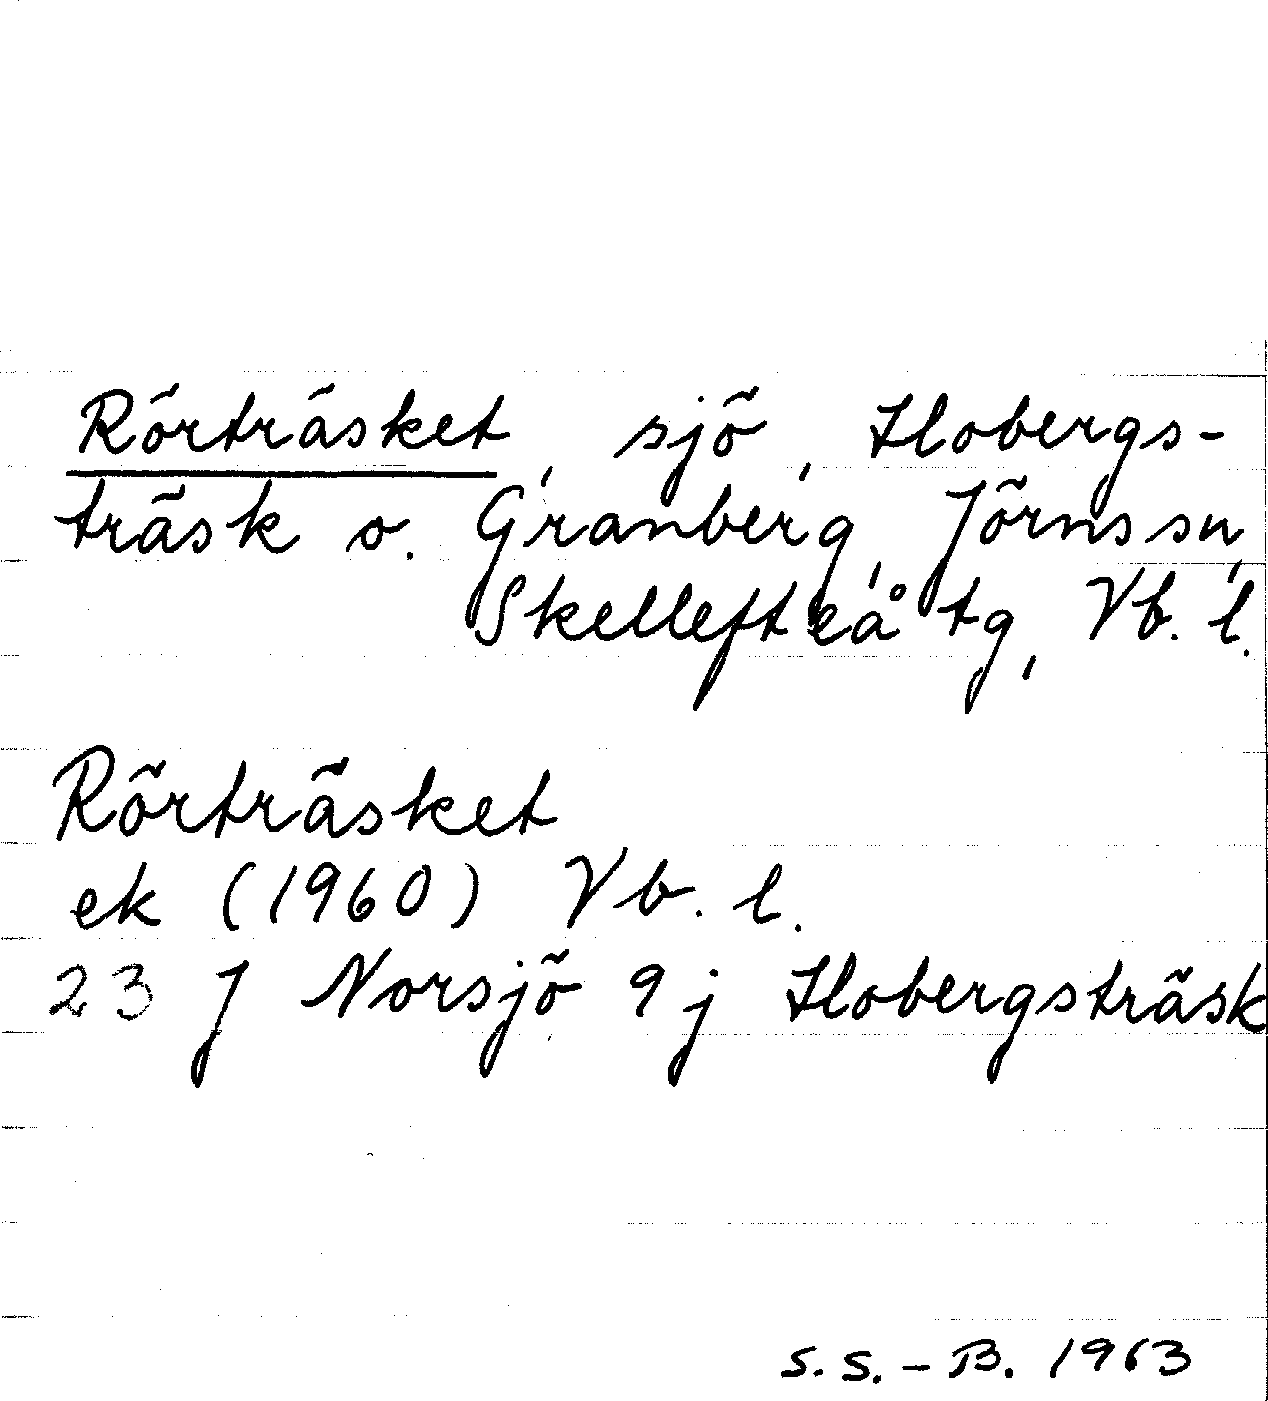 Rörträsket, sjö, Hobergs-
träsk o. Granberg, Jörns sn,
Skellefteå tg, Vb. l.
Rörträsket
ek (1960) Vb. l.
23 J Norsjö 9 j Hobergsträsk
S. S. - B. 1963